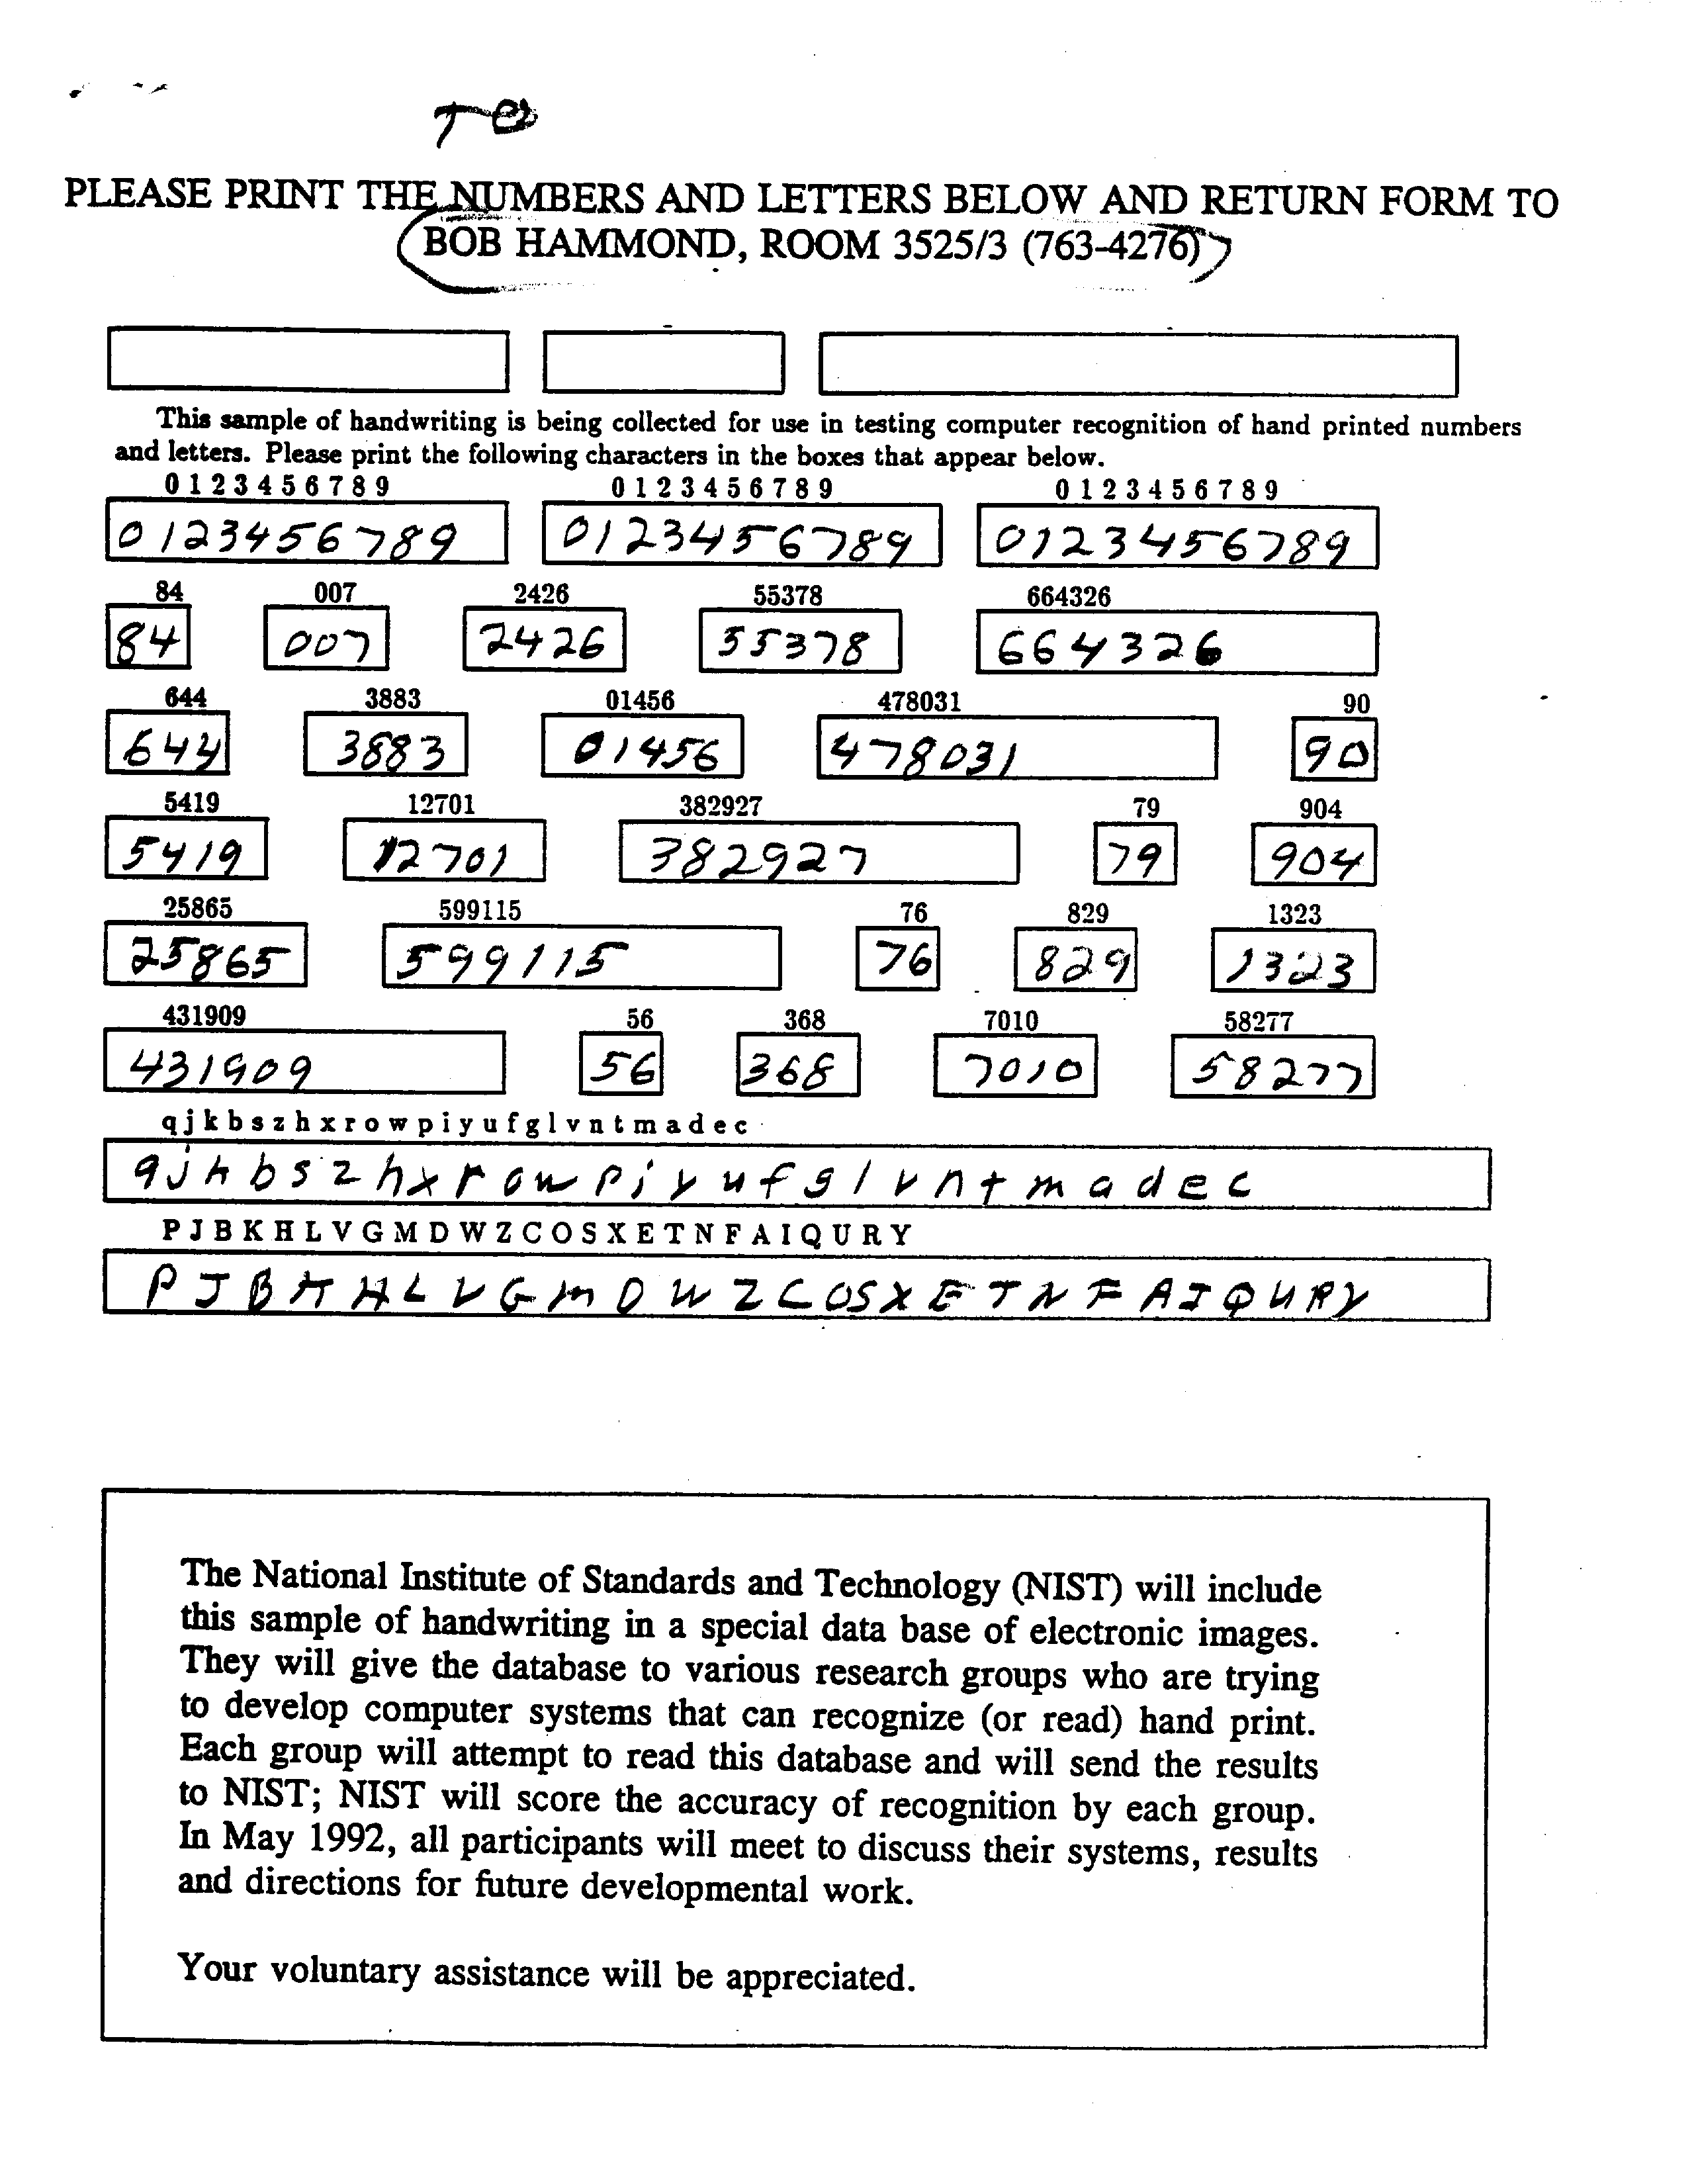 To
PLEASE PRINT THE NUMBERS AND LETTERS BELOW AND RETURN FORM TO
BOB HAMMOND, ROOM 3525/3 (763-4276)
This sample of handwriting is being collected for use in testing computer recognition of hand printed numbers
and letters. Please print the following characters in the boxes that appear below.
0 1 2 3 4 5 6 7 8 9 0 1 2 3 4 5 6 7 8 9 0 1 2 3 4 5 6 7 8 9
0123456789 0123456789 0123456789
84 007 2426 55378 664326
84 007 2426 55378 664326
644 3883 01456 478031 90
644 3883 01456 478031 90
5419 12701 382927 79 904
5419 12701 382927 79 904
25865 599115 76 829 1323
25865 599115 76 829 1323
431909 56 368 7010 58277
431909 56 368 7010 58277
q j k b s z h x r o w p i y u f g l v n t m a d e c
q j k b s z h x r o w p i y u f g l v n t m a d e c
P J B K H L V G M D W Z C O S X E T N F A I Q U R Y
P J B K H L V G M D W Z C O S X E T N F A I Q U R Y
The National Institute of Standards and Technology (NIST) will include
this sample of handwriting in a special data base of electronic images.
They will give the database to various research groups who are trying
to develop computer systems that can recognize (or read) hand print.
Each group will attempt to read this database and will send the results
to NIST; NIST will score the accuracy of recognition by each group.
In May 1992, all participants will meet to discuss their systems, results
and directions for future developmental work.
Your voluntary assistance will be appreciated.